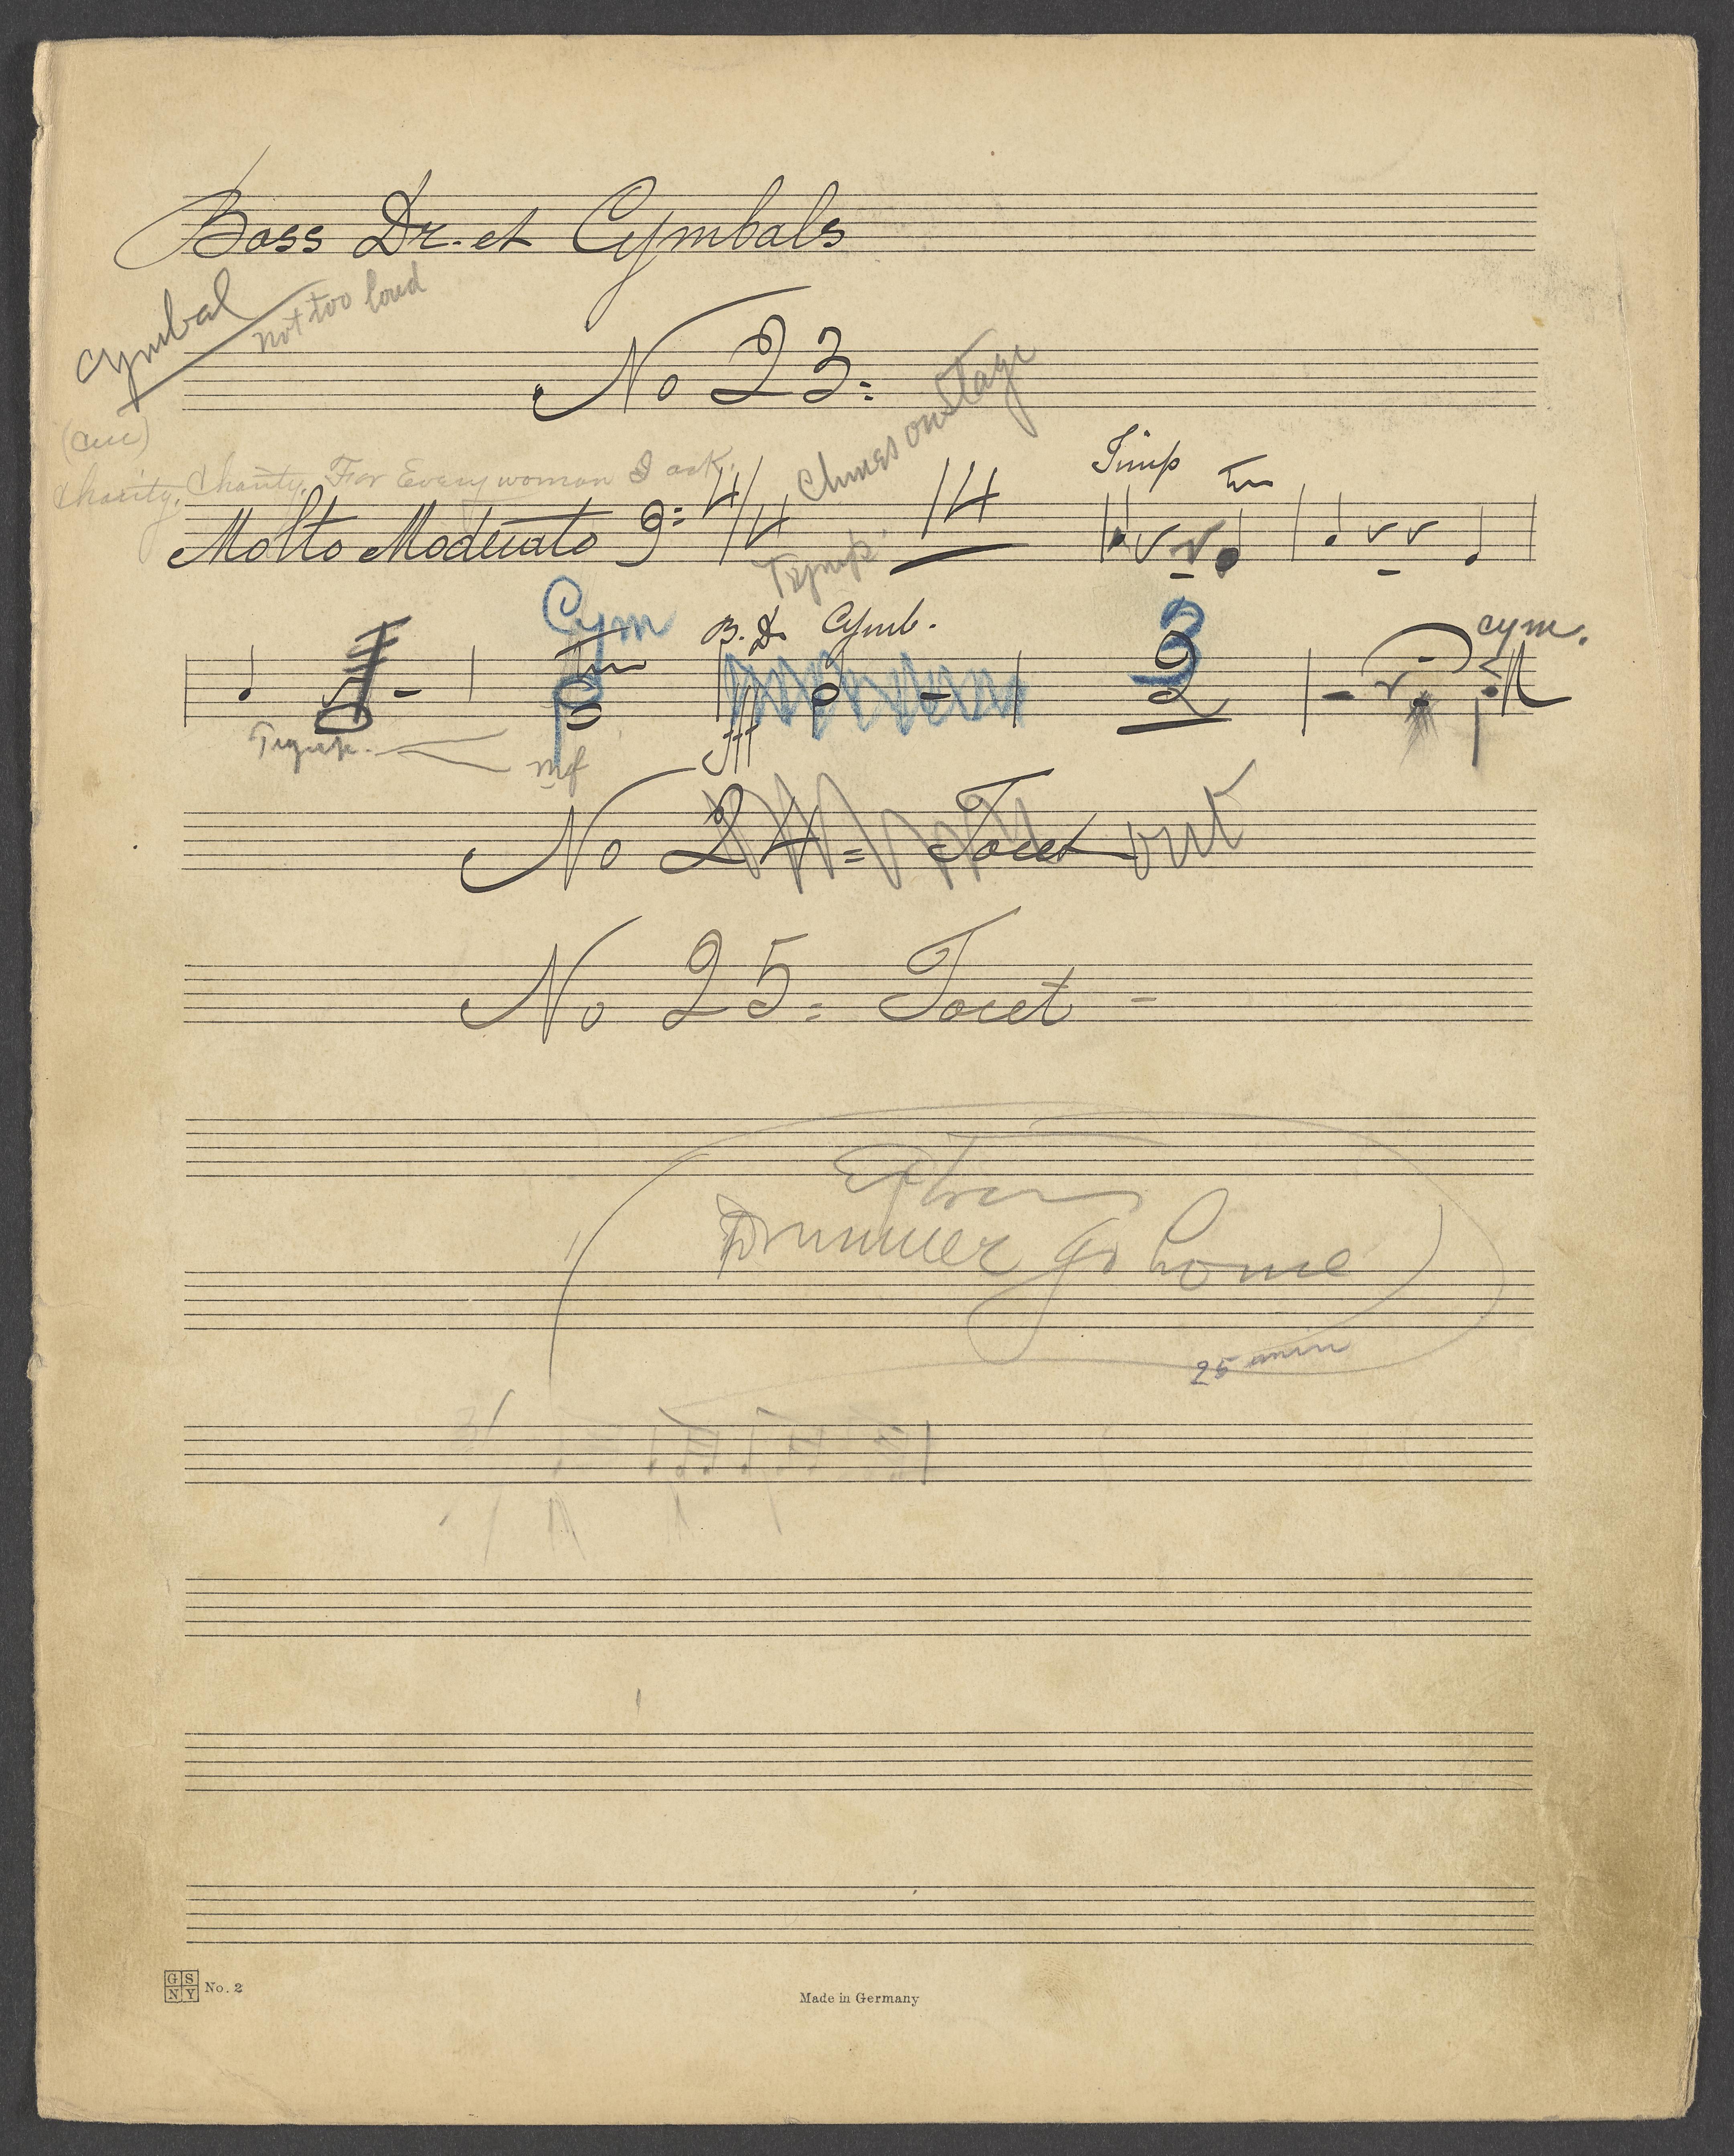 Bass Dr. et Cymbals
Cymbal
not too loud
No 23.
(cue)
Charity, Charity, For Everywoman I ask.
Chimes on stage
Timp
Molto Moderato 4/4 14
Tymp.
Cym
B. D. Cymb.
cym.
3
2
Tymp.
mf
fff
No 24 = Tacet out
No 25 = Tacet =
Extra
Drummer go home
25 min
GS
NY No. 2
Made in Germany